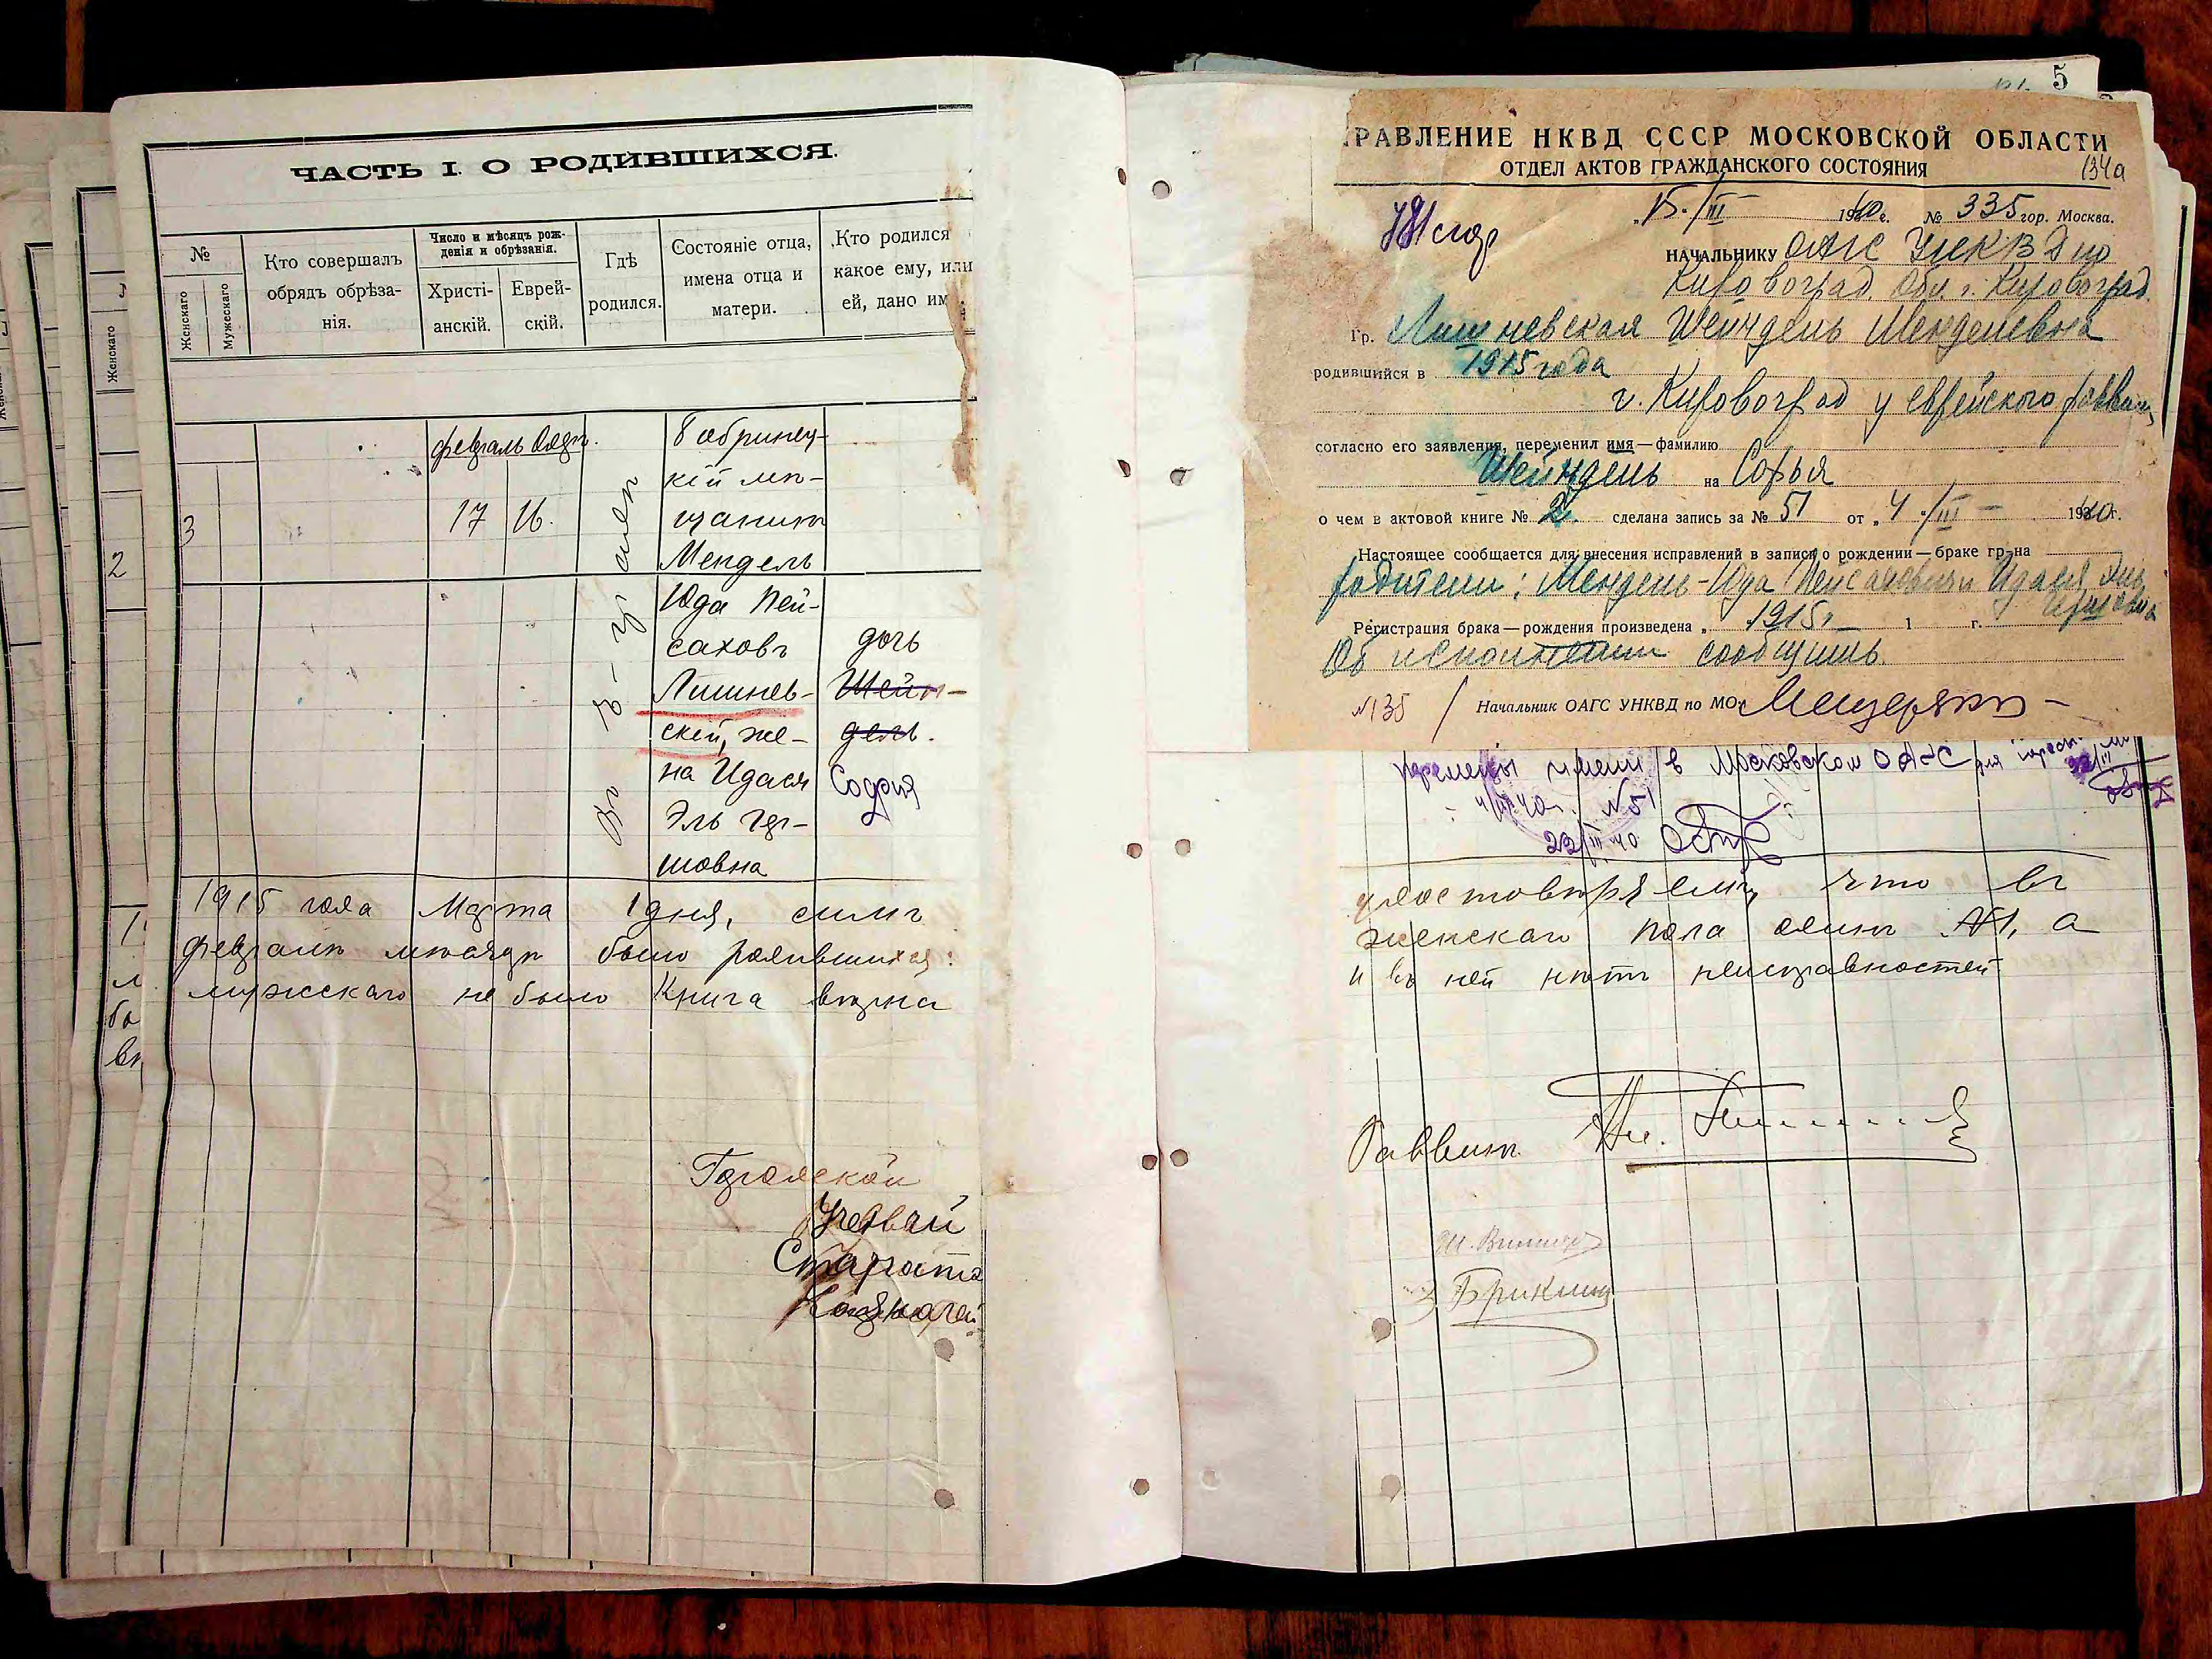 ЧАСТЬ I. О РОДИВШИХСЯ.
№
Женскаго
Мужескаго
Кто совершалъ
обрядъ обрѣза-
нія.
Число и мѣсяцъ рож-
денія и обрѣзанія.
Христі-
анскій.
Еврей-
скій.
Гдѣ
родился.
Состояніе отца,
имена отца и
матери.
Кто родился
какое ему, или
ей, дано им
февраль Адаръ.
3
17
16.
Бобринец-
кій мѣ-
щанинъ
Мендель
Юда Пей-
саховъ
Лишнев-
скій, же-
на Идася
Эль Гер-
шовна
дочь
Шейн-
дель.
София
1915 года Марта 1 дня, симъ
февралѣ мѣсяцѣ было родившихся:
мужскаго не было Книга вѣрна
Городской
Староста
Казначей
2
Женскаго
5
РАВЛЕНИЕ НКВД СССР МОСКОВСКОЙ ОБЛАСТИ
ОТДЕЛ АКТОВ ГРАЖДАНСКОГО СОСТОЯНИЯ
134а
„15./III 1940г. № 335 гор. Москва.
НАЧАЛЬНИКУ ОАГС УНКВД по
Кировоград. обл. г. Кировоград
Гр. Лишневская Шейндель Менделевна
родившийся в 1915 года
г. Кировоград у еврейского раввина
согласно его заявления, переменил имя—фамилию
Шейндель на Софья
о чем в актовой книге № 2. сделана запись за № 51 от „4./III 1940г.
Настоящее сообщается для внесения исправлений в записи о рождении—браке гр-на
родители: Мендель-Юда Пейсахович и Идася Эль
Гершовна
Регистрация брака—рождения произведена „ 1915г 1 г.
Об исполнении сообщить.
№135 Начальник ОАГС УНКВД по МО:
перемены имени в Московском ОАГС
4/III 40г. №51
23/III 40
удостовѣряемъ, что въ
женскаго пола одинъ №1, а
и въ ней нѣтъ неисправностей
Раввинъ